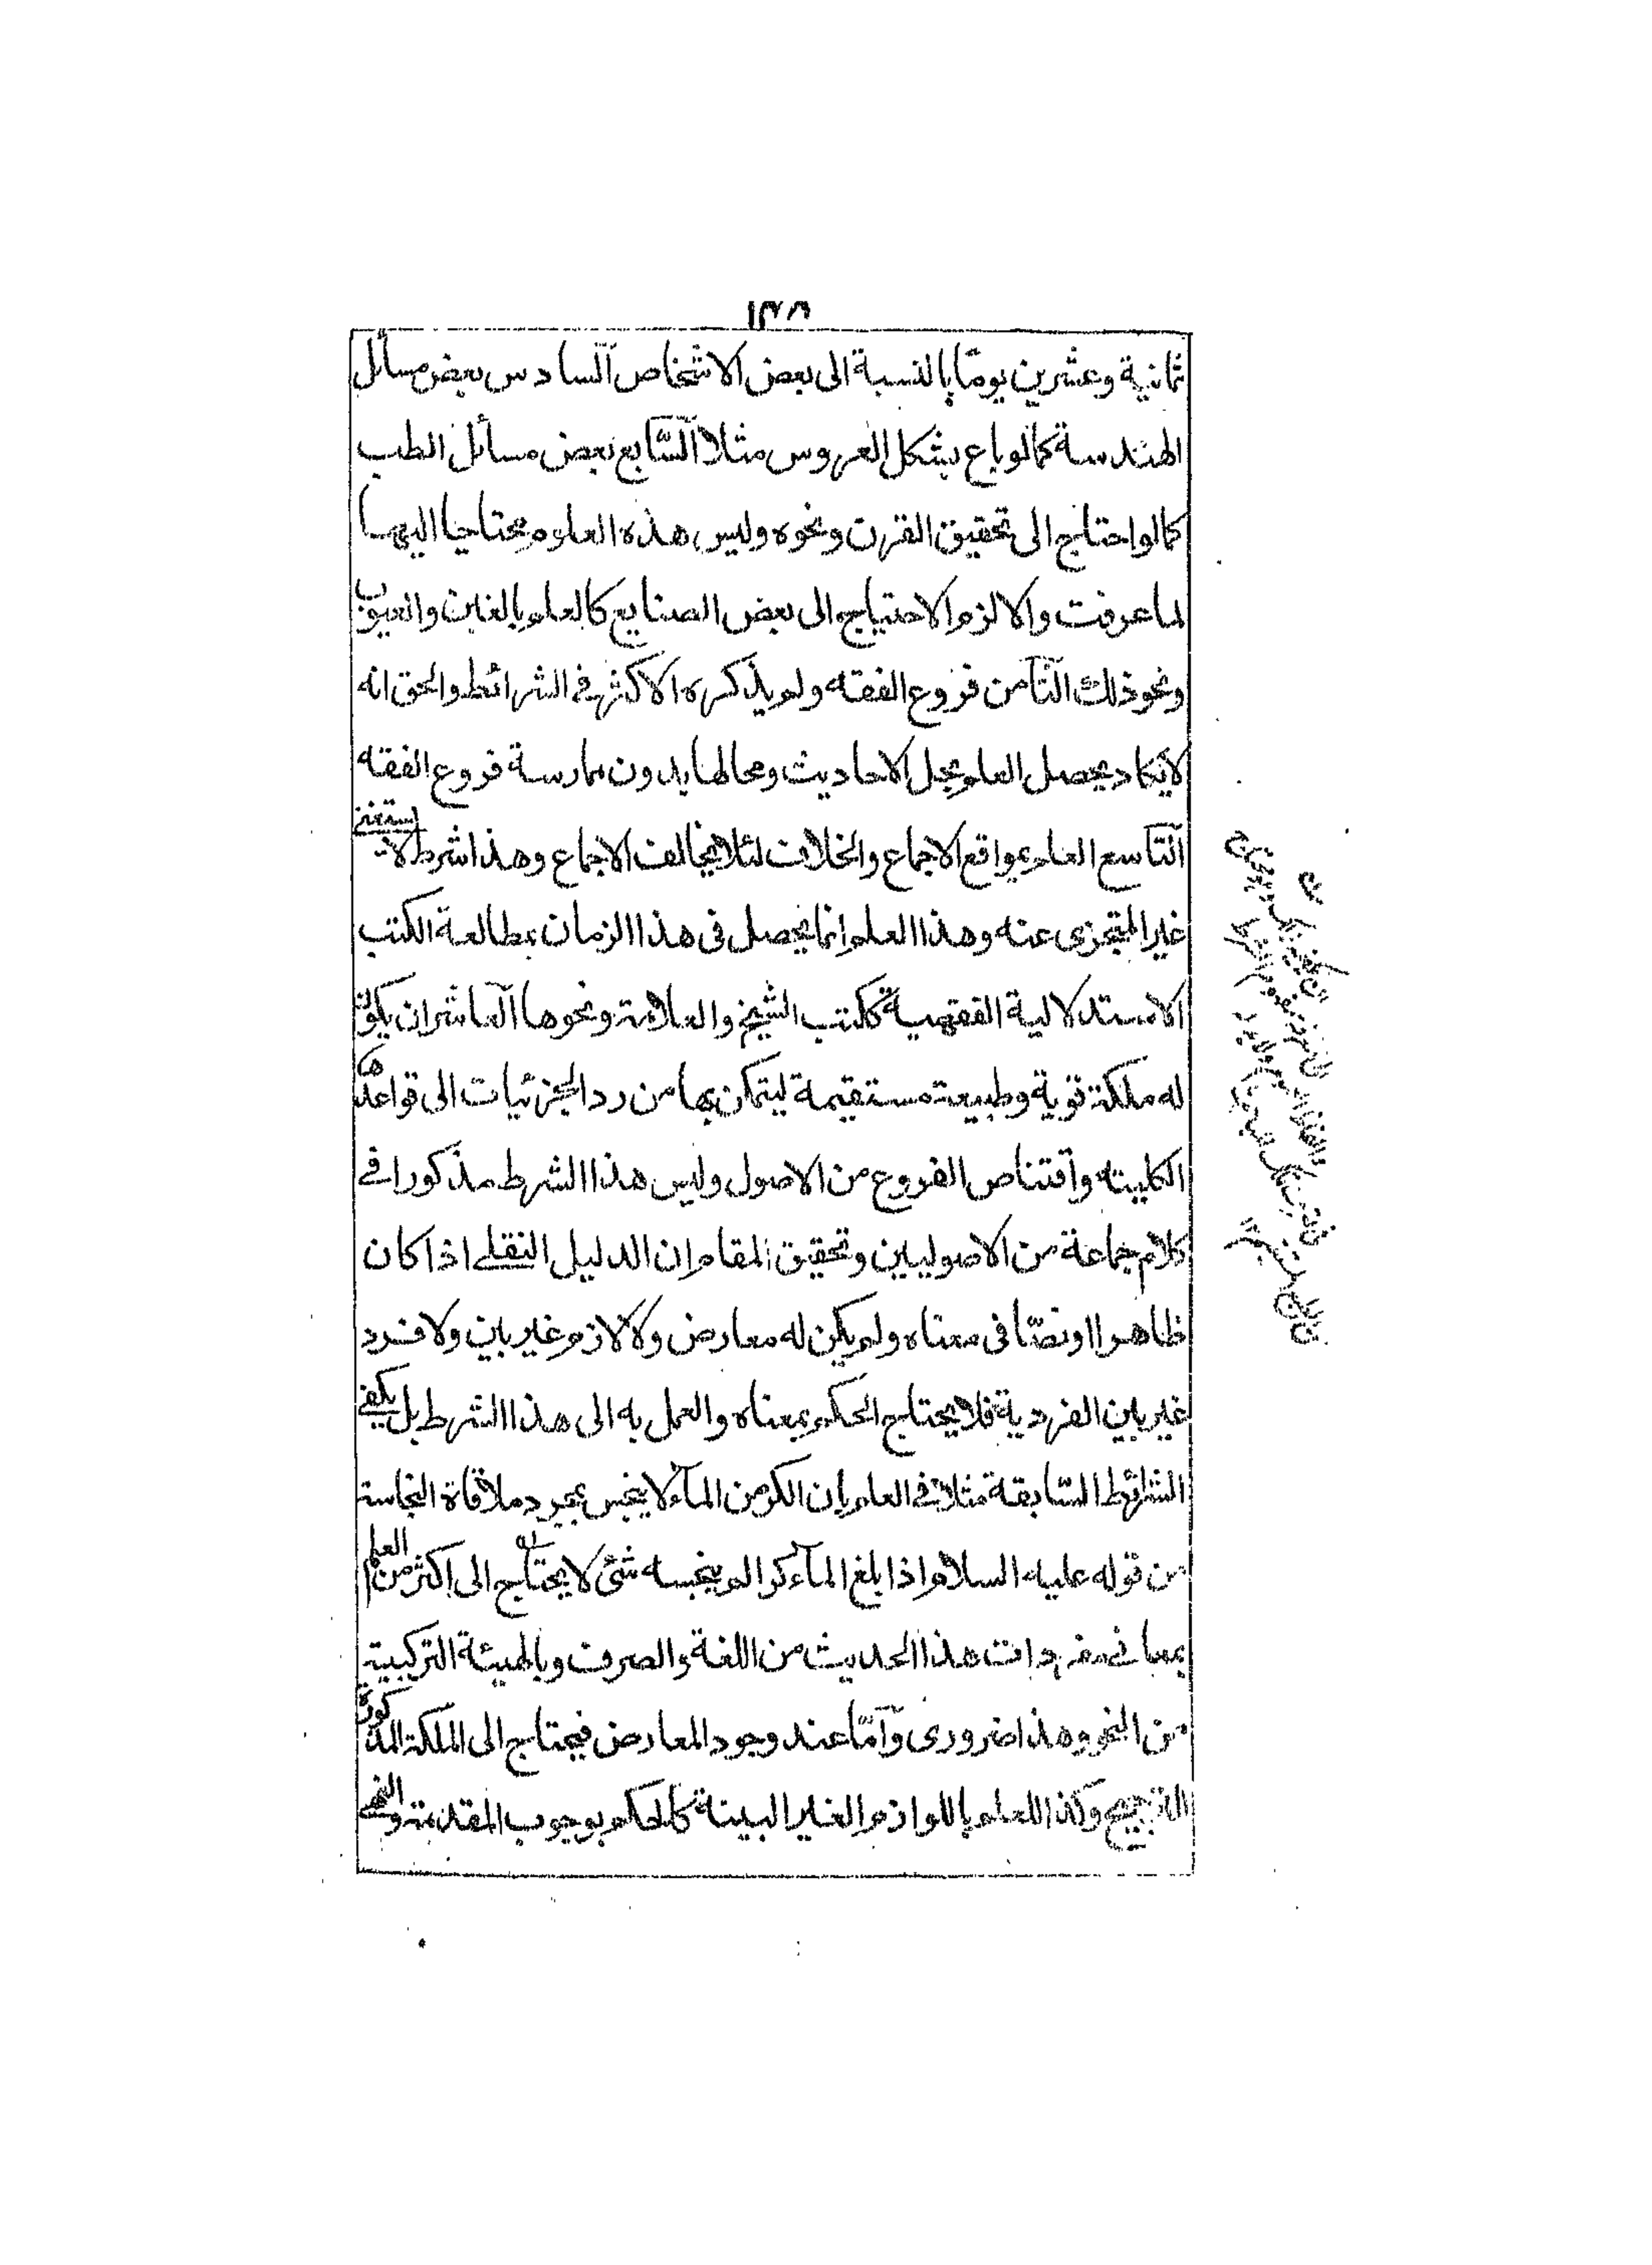 ١٣٨
ثمانية وعشرين يومًا بالنسبة الى بعض الاشخاص السادس بعض مسائل
الهندسة كما لو باع بشكل العروس مثلا السّابع بعض مسائل الطب
كما لو احتاج الى تحقيق القرن ونحوه وليس هذه العلوم محتاجا اليها
لما عرفت والا لزم الاحتياج الى بعض الصنايع كالعلم بالغبن والعيوب
ونحو ذلك الثامن فروع الفقه ولم يذكره الاكثر فى الشرائط والحق انه
لا يكاد يحصل العلم بحل الاحاديث ومحالها بدون ممارسة فروع الفقه
التاسع العلم بمواقع الاجماع والخلاف لئلا يخالف الاجماع وهذا شرط لا يستغنى
غير المتجزى عنه وهذا العلم انما يحصل فى هذا الزمان بمطالعة الكتب
الاستدلالية الفقهية ككتب الشيخ والعلامة ونحوها العاشر ان يكون
له ملكة قوية وطبيعة مستقيمة ليتمكن بها من رد الجزئيات الى قواعدها
الكلية واقتناص الفروع من الاصول وليس هذا الشرط مذكورا فى
كلام جماعة من الاصوليين وتحقيق المقام ان الدليل النقلى اذا كان
ظاهرا او نصّا فى معناه ولم يكن له معارض ولا لازم غير بين ولا فرد
غير بين الفردية فلا يحتاج الحكم بمعناه والعمل به الى هذا الشرط بل يكفى
الشرائط السّابقة مثلا فى العلم بان الكر من المآء لا ينجس بمجرد ملاقاة النجاسة
من قوله عليه السلام اذا بلغ المآء كرا لم ينجسه شئ لا يحتاج الى اكثر من العلم
بمعانى مفردات هذا الحديث من اللغة والصرف وبالهيئة التركيبية
من النحو وهذا ضرورى وامّا عند وجود المعارض فيحتاج الى الملكة المذكورة
للترجيح وكذا للعلم باللوازم الغير البينة كالحكم بوجوب المقدمة والنهى